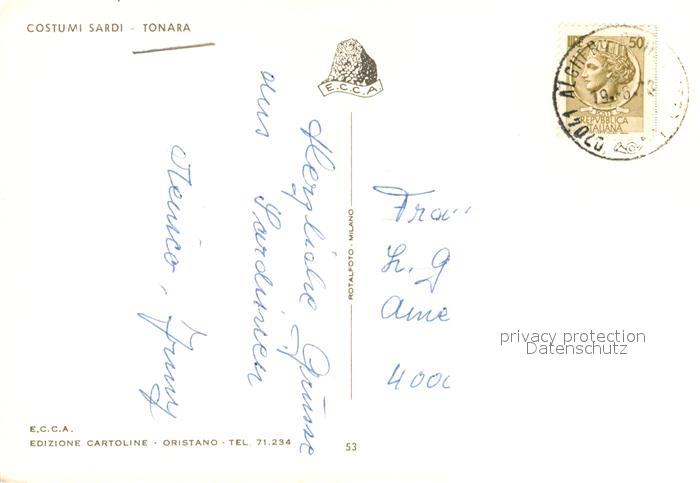 COSTUMI SARDI - TONARA
E.C.C.A.
Herzliche Grüsse
aus Sardinien
LIRE 50
REPVBBLICA
ITALIANA
07041 ALGHERO
ROTALFOTO - MILANO
Frau
L. G
Ame
4000
privacy protection
Datenschutz
E.C.C.A.
EDIZIONE CARTOLINE - ORISTANO - TEL. 71.234
53